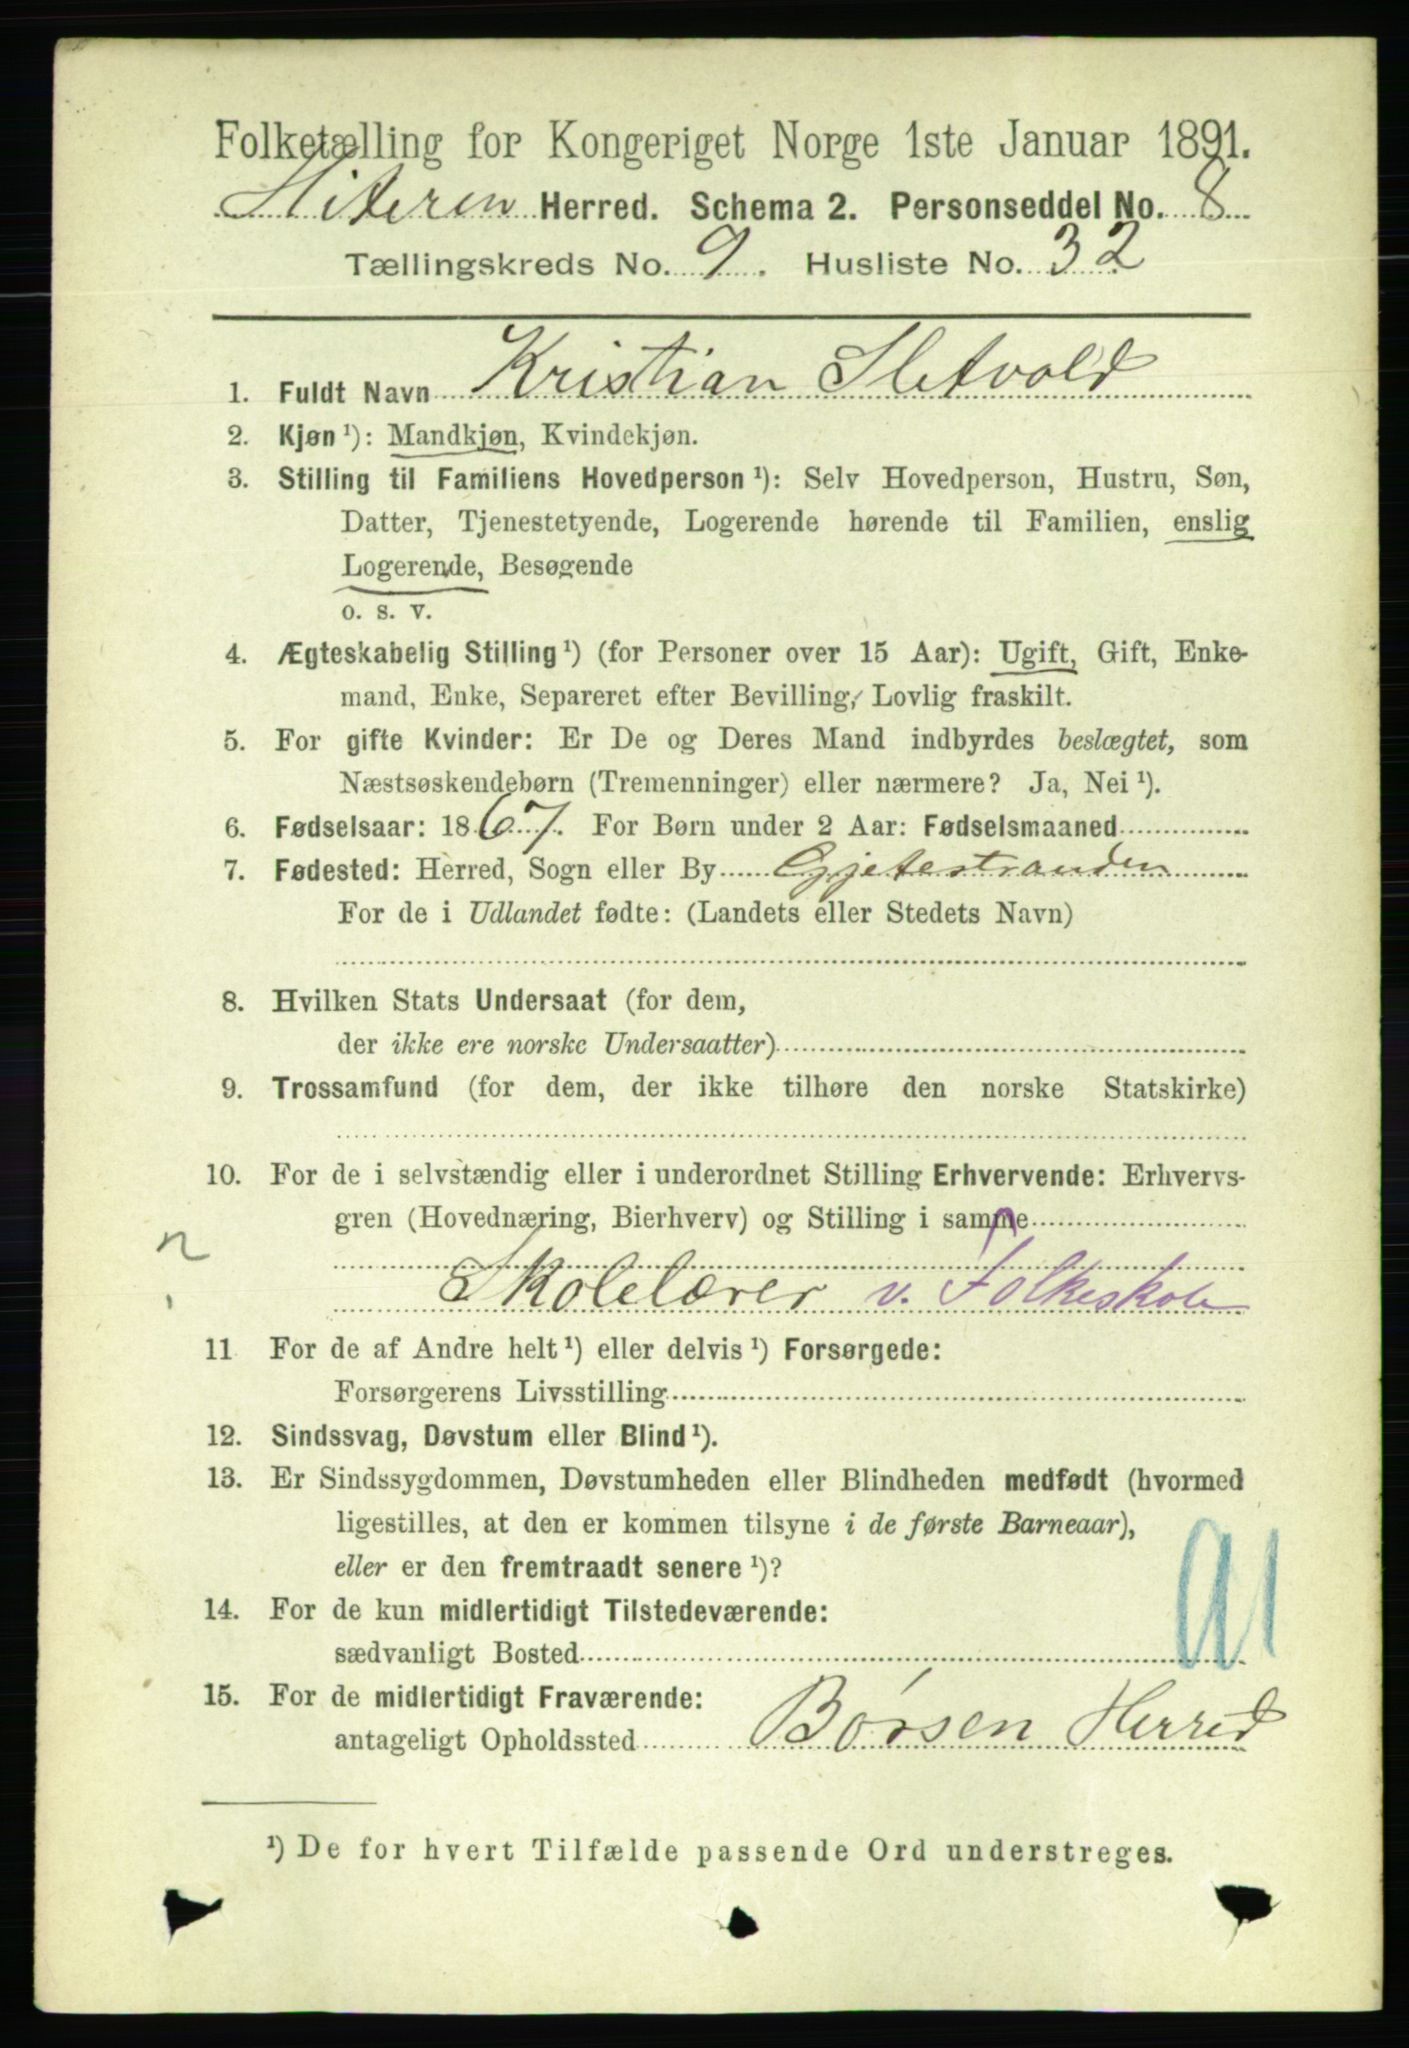 Folketælling for Kongeriget Norge 1ste Januar 1891.
Hiteren Herred. Schema 2. Personseddel No. 8
Tællingskreds No. 9. Husliste No. 32
1. Fuldt Navn Kristian Sletvold
2. Kjøn ¹): Mandkjøn, Kvindekjøn.
3. Stilling til Familiens Hovedperson ¹): Selv Hovedperson, Hustru, Søn,
Datter, Tjenestetyende, Logerende hørende til Familien, enslig
Logerende, Besøgende
o. s. v.
4. Ægteskabelig Stilling ¹) (for Personer over 15 Aar): Ugift, Gift, Enke-
mand, Enke, Separeret efter Bevilling, Lovlig fraskilt.
5. For gifte Kvinder: Er De og Deres Mand indbyrdes beslægtet, som
Næstsøskendebørn (Tremenninger) eller nærmere? Ja, Nei ¹).
6. Fødselsaar: 1867. For Børn under 2 Aar: Fødselsmaaned
7. Fødested: Herred, Sogn eller By
For de i Udlandet fødte: (Landets eller Stedets Navn)
8. Hvilken Stats Undersaat (for dem,
der ikke ere norske Undersaatter)
9. Trossamfund (for dem, der ikke tilhøre den norske Statskirke)
10. For de i selvstændig eller i underordnet Stilling Erhvervende: Erhvervs-
gren (Hovednæring, Bierhverv) og Stilling i samme
n
Skolelærer v. Folkeskole
11 For de af Andre helt ¹) eller delvis ¹) Forsørgede:
Forsørgerens Livsstilling
12. Sindssvag, Døvstum eller Blind ¹).
13. Er Sindssygdommen, Døvstumheden eller Blindheden medfødt (hvormed
ligestilles, at den er kommen tilsyne i de første Barneaar),
eller er den fremtraadt senere ¹)?
14. For de kun midlertidigt Tilstedeværende:
sædvanligt Bosted
15. For de midlertidigt Fraværende:
antageligt Opholdssted Børsen Herred
¹) De for hvert Tilfælde passende Ord understreges.